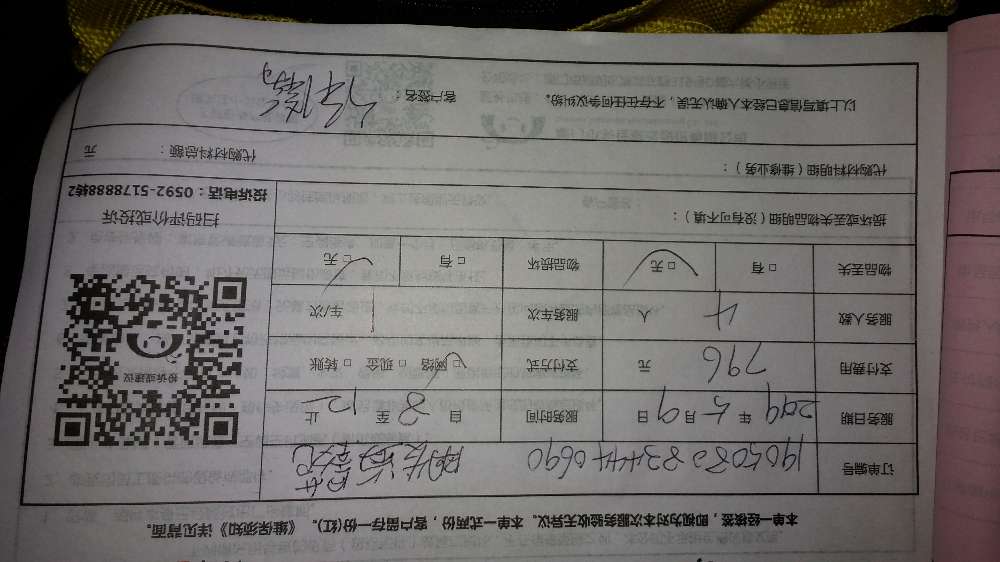 本单一经核签，即视为对本次服务验收无异议。本单一式两份，客户留存一份(红)。《维保须知》详见背面。
订单编号 190508 0690
服务日期 2019 年 5 月 9 日 服务时间 8 自 至 12 止
支付费用 796 元 支付方式 □ 网络 □ 现金 □ 转账
服务人数 4 人 服务车次 1 车/次
物品丢失 □ 有 □ 无 物品损坏 □ 有 □ 无
损坏或丢失物品明细（没有可不填）：
投诉或建议
扫码评价或投诉
投诉电话：0592-5178888转2
代购材料明细（维修业务）：
代购材料总额： 元
以上填写信息已经本人确认无误，不存在任何争议纠纷。 客户签名：